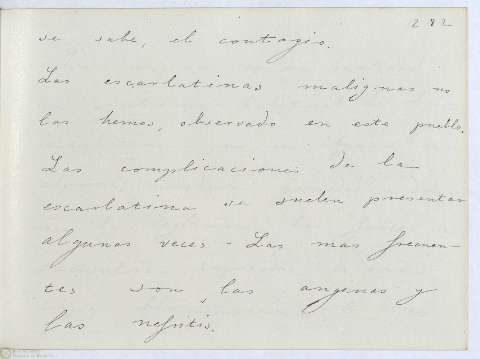 282
se sabe, el contagio.
Las escarlatinas malignas no
las hemos, observado en este pueblo.
Las complicaciones de la
escarlatina se suelen presentar
algunas veces - Las mas frecuen-
tes son, las anginas y
las nefritis.